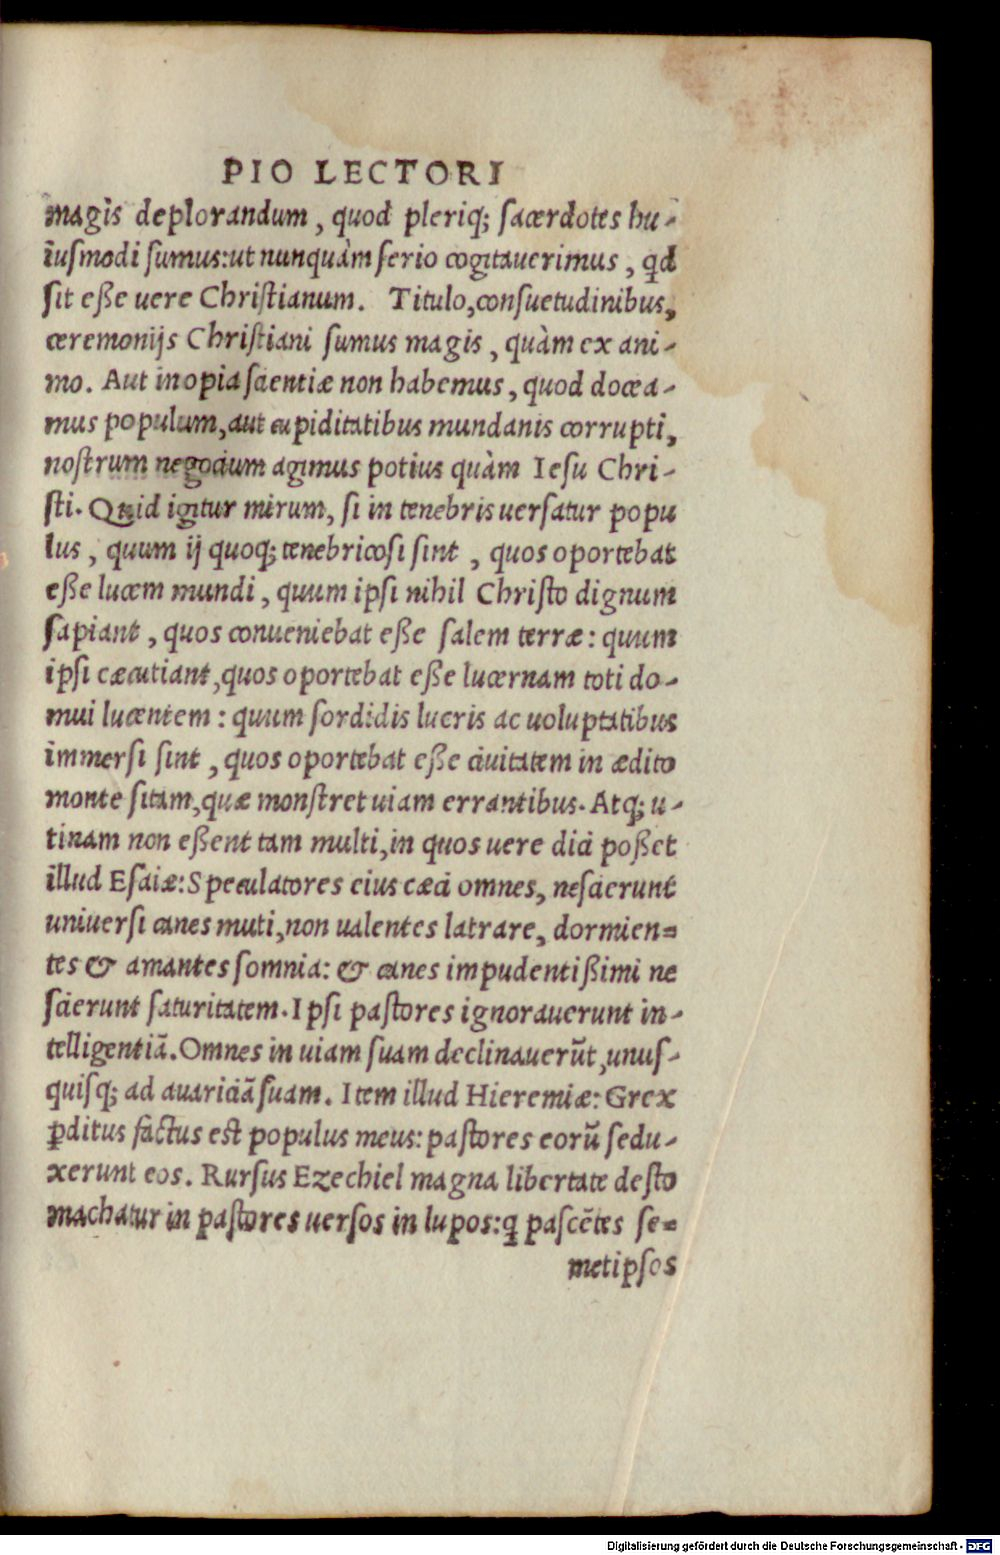 PIO LECTORI
magis deplorandum, quod pleriq; sacerdotes hu-
iusmodi sumus: ut nunquàm serio cogitauerimus, qd
sit eße uere Christianum. Titulo, consuetudinibus,
ceremonijs Christiani sumus magis, quàm ex ani-
mo. Aut inopia scientiæ non habemus, quod docea-
mus populum, aut cupiditatibus mundanis corrupti,
nostrum negocium agimus potius quàm Iesu Chri-
sti. Quid igitur mirum, si in tenebris uersatur popu
lus, quum ij quoq; tenebricosi sint, quos oportebat
eße lucem mundi, quum ipsi nihil Christo dignum
sapiant, quos conueniebat eße salem terræ: quum
ipsi cæcutiant, quos oportebat eße lucernam toti do-
mui lucentem: quum sordidis lucris ac uoluptatibus
immersi sint, quos oportebat eße ciuitatem in ædito
monte sitam, quæ monstret uiam errantibus. Atq; u-
tinam non eßent tam multi, in quos uere dici poßet
illud Esaiæ: Speculatores eius cæci omnes, nescierunt
uniuersi canes muti, non ualentes latrare, dormien-
tes & amantes somnia: & canes impudentißimi ne
scierunt saturitatem. Ipsi pastores ignorauerunt in-
telligentiã. Omnes in uiam suam declinauerũt, unus-
quisq; ad auariciã suam. Item illud Hieremiæ: Grex
ꝑditus factus est populus meus: pastores eorũ sedu-
xerunt eos. Rursus Ezechiel magna libertate desto
machatur in pastores uersos in lupos: ꝗ pascẽtes se-
metipsos
Digitalisierung gefördert durch die Deutsche Forschungsgemeinschaft - DFG